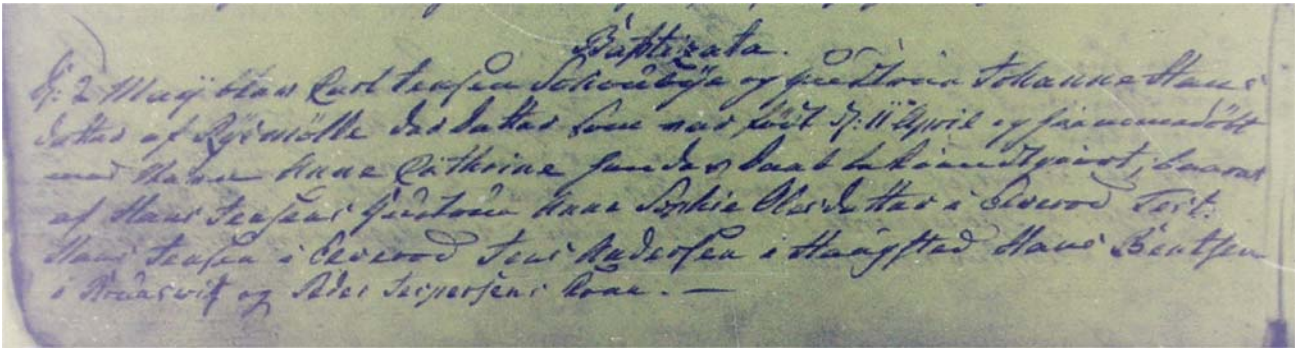 Baptizata.
D: 2 Maÿ blev Carl Jensen Schoubÿe og Hustrue Johanne Hans
datter af Rÿemölle deres datter som var föd d: 11 April og hiemmedöbt
med Navn Anne Cathrine hendes Daab bekiendtgiort, baaren
af Hans Jensens Hustrue Anne Sophie Olesdatter i Elverod Test:
Hans Jensen i Elverod Jens Andersen i Haagsted Hans Bentsen
i og Peder Jespersens Kone. —